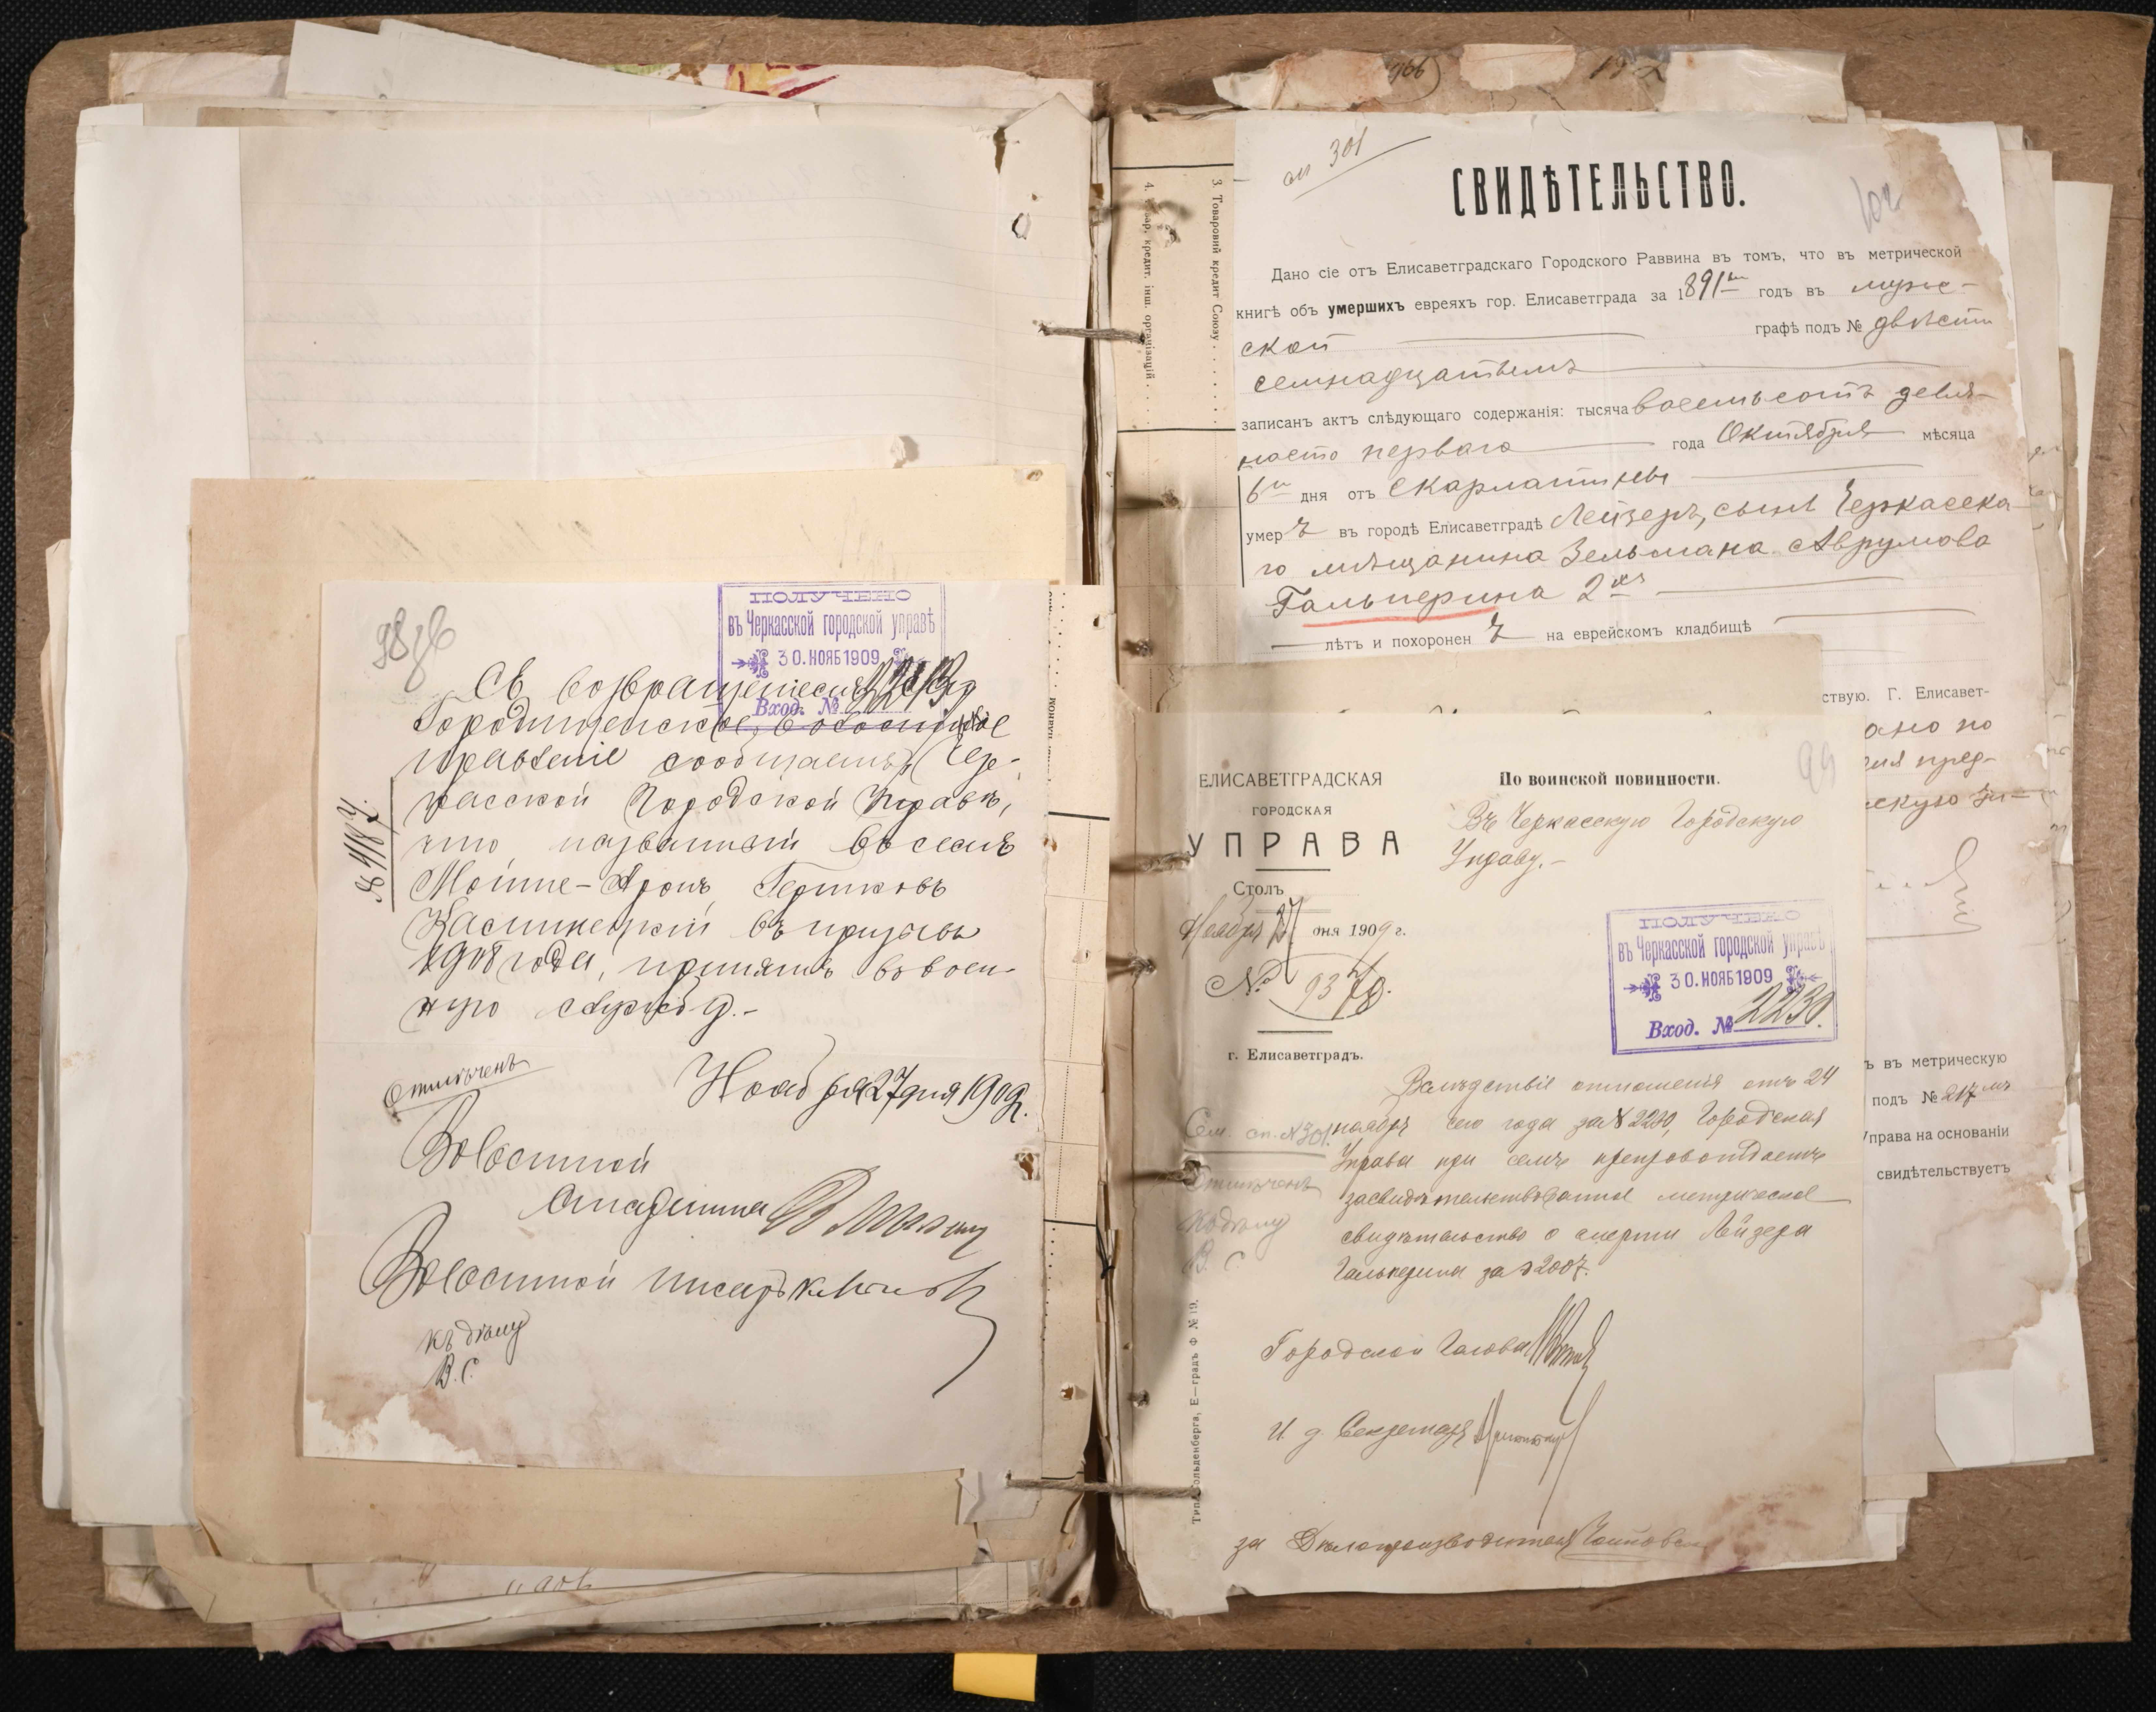 98 об
ПОЛУЧЕНО
въ Черкасской городской управѣ
30. НОЯБ 1909
Вход. №
Съ возвращеніемъ
Городищенское волостное
правленіе сообщаетъ Чер-
касской Городской Управѣ,
что названный въ семъ
Мойше-Аронъ Гершковъ
въ призывъ
1908 года, принятъ въ воен-
ную службу.-
№ 4187
Отмѣченъ
Ноября 27 дня 1909 г.
Волостной
старшина
Волостной писарь
Къ дѣлу
В. С.
966
3. Товаровий кредит Союзу
4. кредит. інш. організацій
сп 301
102
СВИДѢТЕЛЬСТВО.
Дано сіе отъ Елисаветградскаго Городского Раввина въ томъ, что въ метрической
книгѣ объ умершихъ евреяхъ гор. Елисаветграда за 1891й годъ въ муже-
ской графѣ подъ № двѣсти
семнадцатымъ
записанъ актъ слѣдующаго содержанія: тысяча восемьсотъ девя-
носто перваго года Октября мѣсяца
6го дня отъ скарлатины
умеръ въ городѣ Елисаветградѣ Лейзеръ, сынъ Черкасска-
го мѣщанина Зельмана Аврумова
Гальперина 2хъ
лѣтъ и похороненъ на еврейскомъ кладбищѣ
ствую. Г. Елисавет-
ано по
пред-
ъ въ метрическую
подъ № 217мъ
Управа на основаніи
свидѣтельствуетъ
99
ЕЛИСАВЕТГРАДСКАЯ
ГОРОДСКАЯ
УПРАВА
Столъ
Ноября 27 дня 1909 г.
№ 9378.
г. Елисаветградъ.
По воинской повинности.
Въ Черкасскую Городскую
Управу.-
ПОЛУЧЕНО
въ Черкасской городской управѣ
30. НОЯБ 1909
Вход. № 2230.
Вслѣдствіе отношенія отъ 24
ноября сего года за № 2220, Городская
Управа при семъ препровождаетъ
засвидѣтельствованное метрическое
свидѣтельство о смерти Лейзера
Гальперина за № 2007.
Сем. сп. № 301.
Отмѣченъ
Къ дѣлу
В. С
Городской Голова
И. д. Секретаря
за Дѣлопроизводителя
Тип. Гольденберга, Е—градъ Ф № 19.